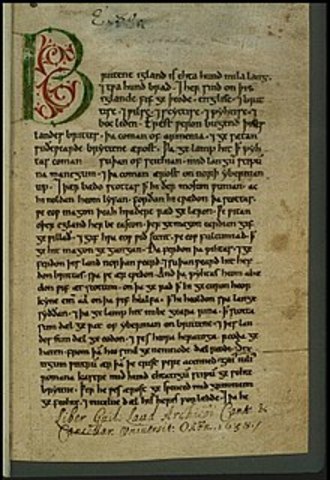 Brittene igland is ehta hund mila lang.
⁊ tƿa hund brad. ⁊ her sind on þis
iglande fif geþeode. englisc. ⁊ brit
tisc. ⁊ ƿilsc. ⁊ scyttisc. ⁊ pyhtisc. ⁊
boc leden. Erest ƿeron bugend þises
landes brittes. þa coman of armenia. ⁊ gesætan
suðeƿearde bryttene ærost. Þa gelamp hit ꝥ pyh
tas coman suþan of scithian. mid langū scipū
na manegum. ⁊ þa coman ærost on norþ ybernian
up. ⁊ þær bædo scottas ꝥ hi ðer moston ƿunian. ac
hi noldan heom lyfan. forðan hi cƿædon þa scottas.
ƿe eoƿ magon þeah hƿaðere ræd gelæron. Ƿe ƿitan
oþer egland her be easton. þer ge magon eardian gif
ge ƿillað. ⁊ gif hƿa eoƿ ƿiðstent. ƿe eoƿ fultumiað. ꝥ
ge hit magon gegangan. Ða ferdon þa pihtas. ⁊ ge
ferdon þis land norþanƿeard. ⁊ suþanƿeard hit hef
don brittas. sƿa ƿe ær cƿedon. And þa pyhtas heom abæ
don ƿif æt scottum. on þa gerad ꝥ hi gecuron heora
kyne cinn aa on þa ƿif healfa. ꝥ hi heoldon sƿa lange
syððan. ⁊ þa gelamp hit imbe geara rina. ꝥ scotta
sum dæl geƿat of ybernian on brittene. ⁊ þes lan
des sum dæl geeodon. ⁊ ƿes heora heratoga reoda ge
haten. from þā heo sind genemnode dæl reodi. Six
tigum ƿintrū ær þā þe crist ƿere acenned. gai iuli
romana kasere mid hund ehtatigū scipū gesohte
brytene. Þer he ƿes ærost gesƿenced mid grimmum
ge feohte. ⁊ micelne dæl his heres forlædde. ⁊ þa he
Liber Guil. Laud Archiepi Cant. &
Cancellar. Universit. Oxon. 1638.